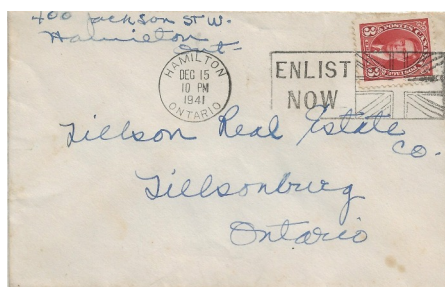 400 Jackson St W.
Hamilton
Ont-
HAMILTON
DEC 15
10 PM
1941
ONTARIO
ENLIST
NOW
POSTES CANADA
3 3
Tillson Real Estate
Co.
Tillsonburg
Ontario